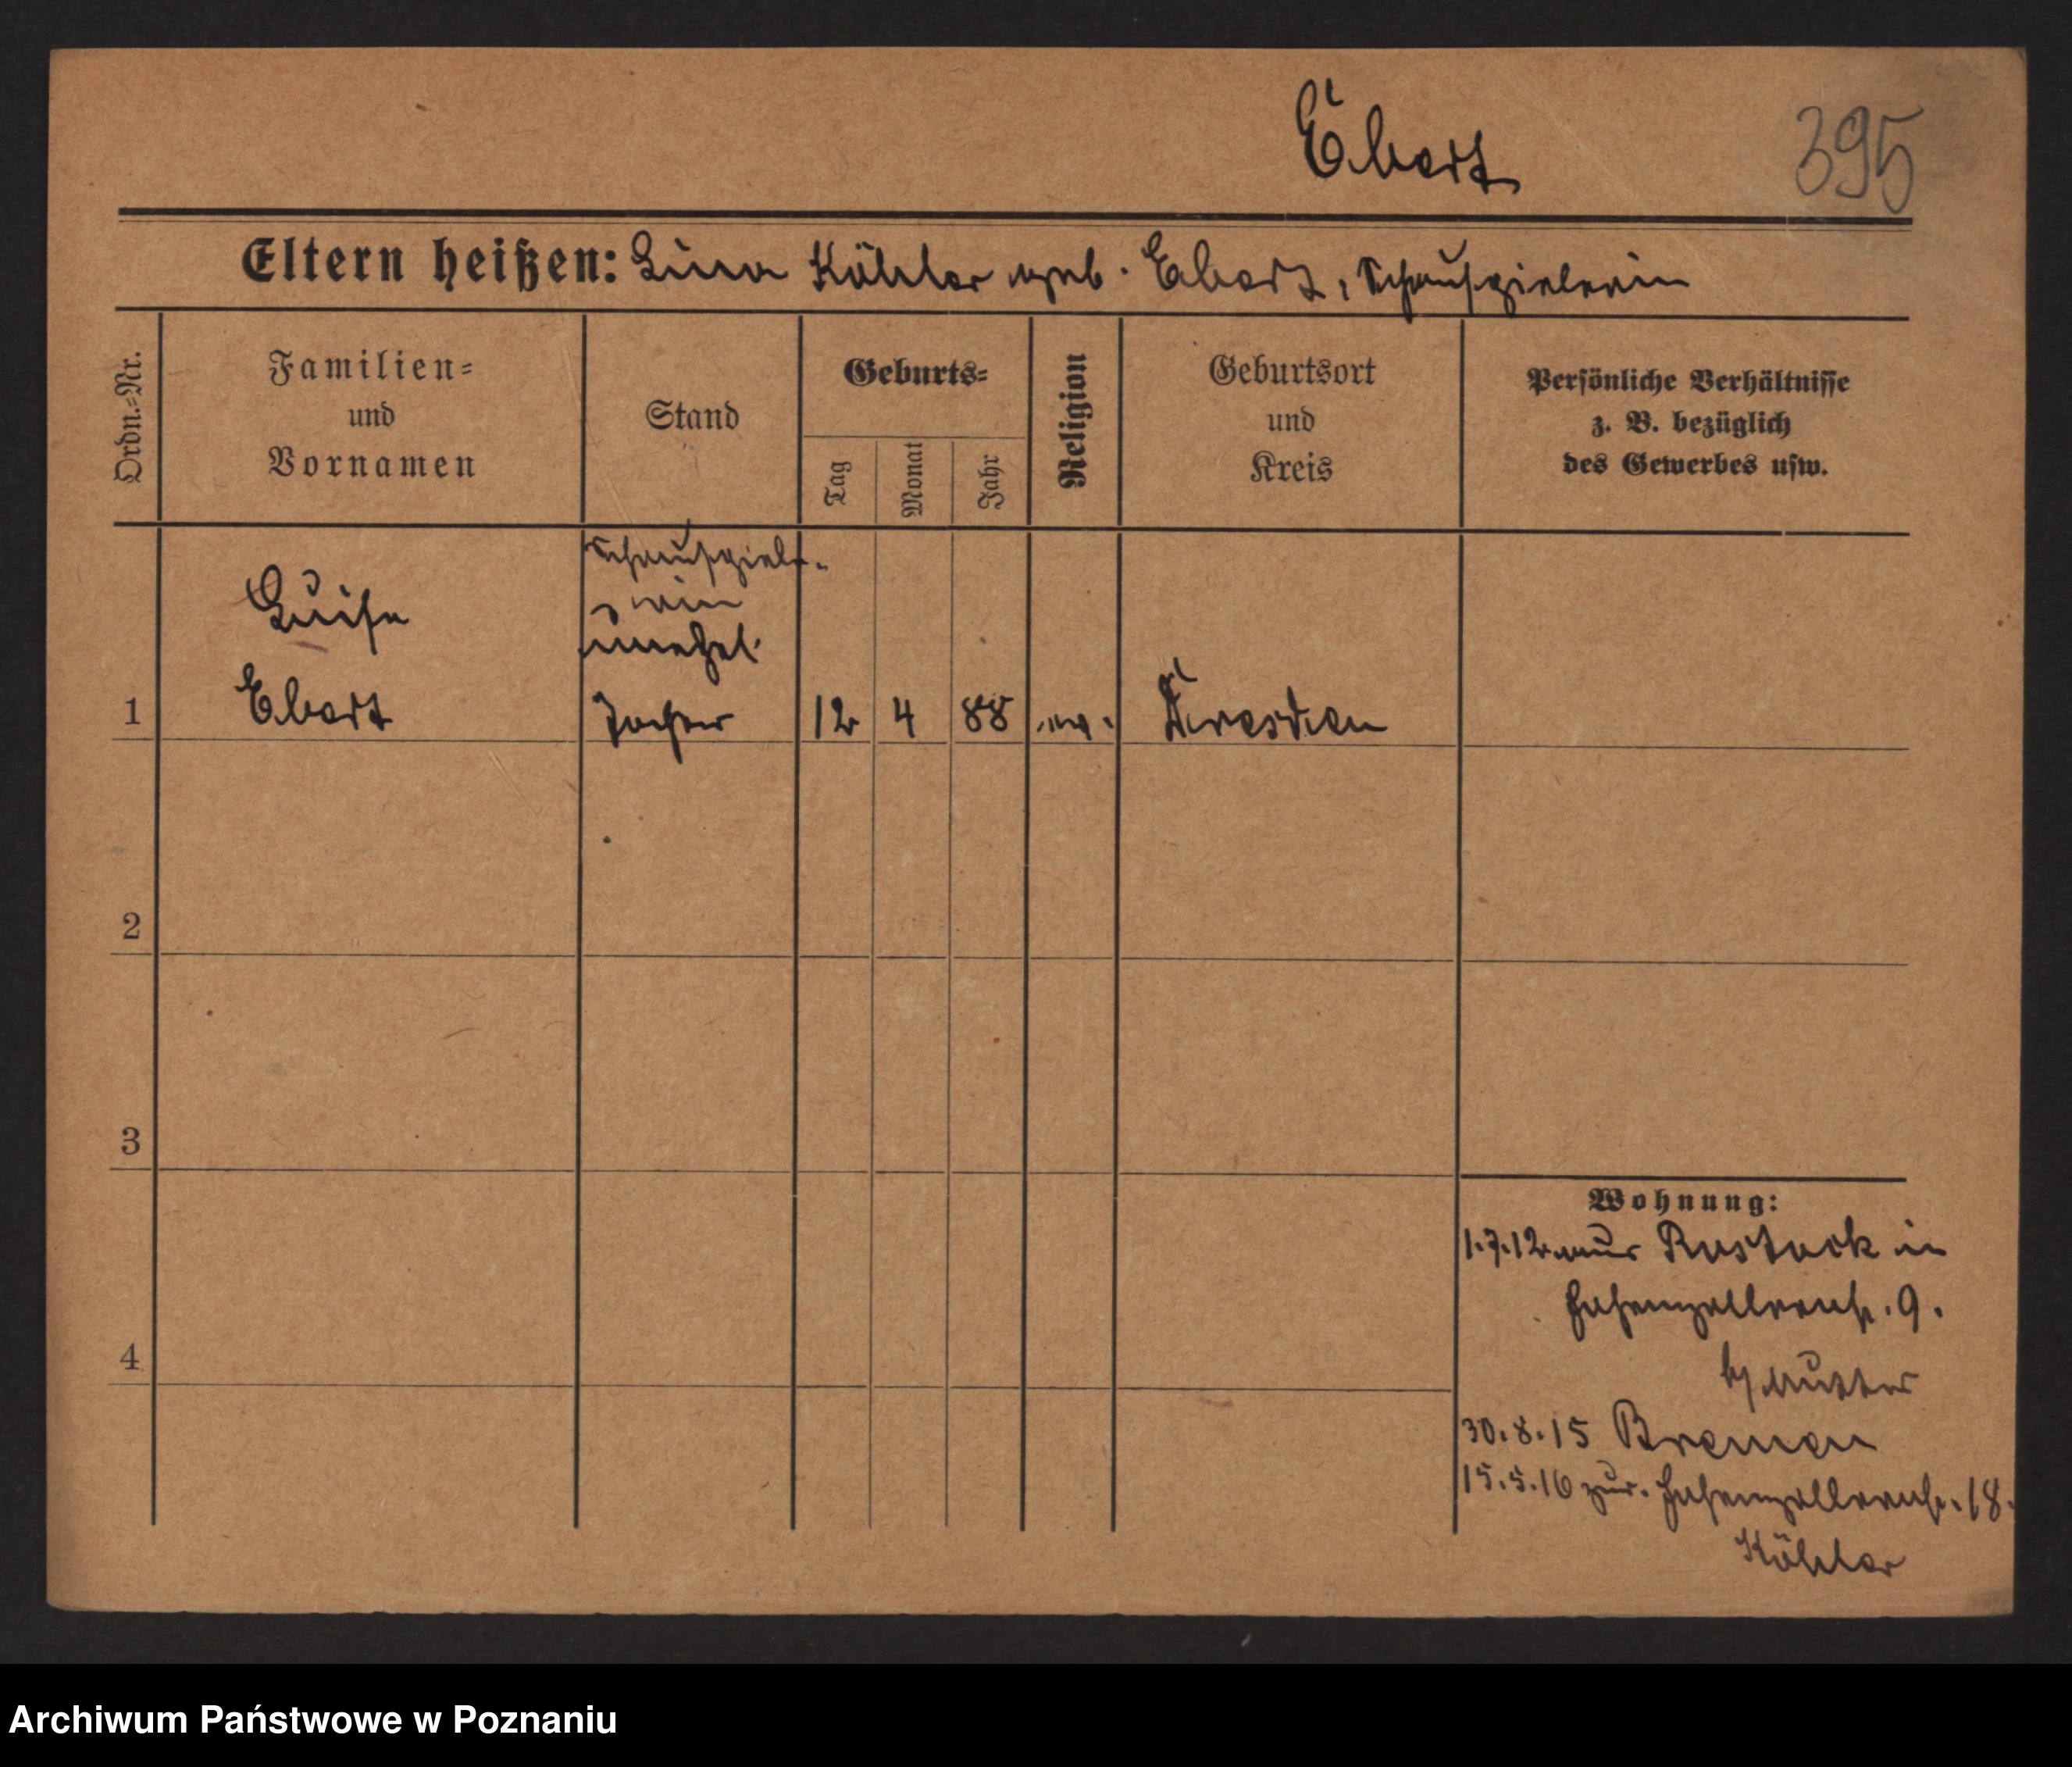 Ebert
395
Eltern heißen: Lina Köhler geb. Ebert, Schauspielerin
Ordn.-Nr.
Familien-
und
Vornamen
Stand
Geburts-
Tag
Monat
Jahr
Religion
Geburtsort
und
Kreis
Persönliche Verhältnisse
z. B. bezüglich
des Gewerbes usw.
Schauspiele-
rin
Luise
unehel.
1 Ebert Tochter 12 4 88 ev. Dresden
2
3
4
Wohnung:
1.7.12 aus Rostock in
Hohenzollernstr. 9.
b/ Mutter
30.8.15 Bremen
15.5.16 zur. Hohenzollernstr. 18.
Köhler
Archiwum Państwowe w Poznaniu